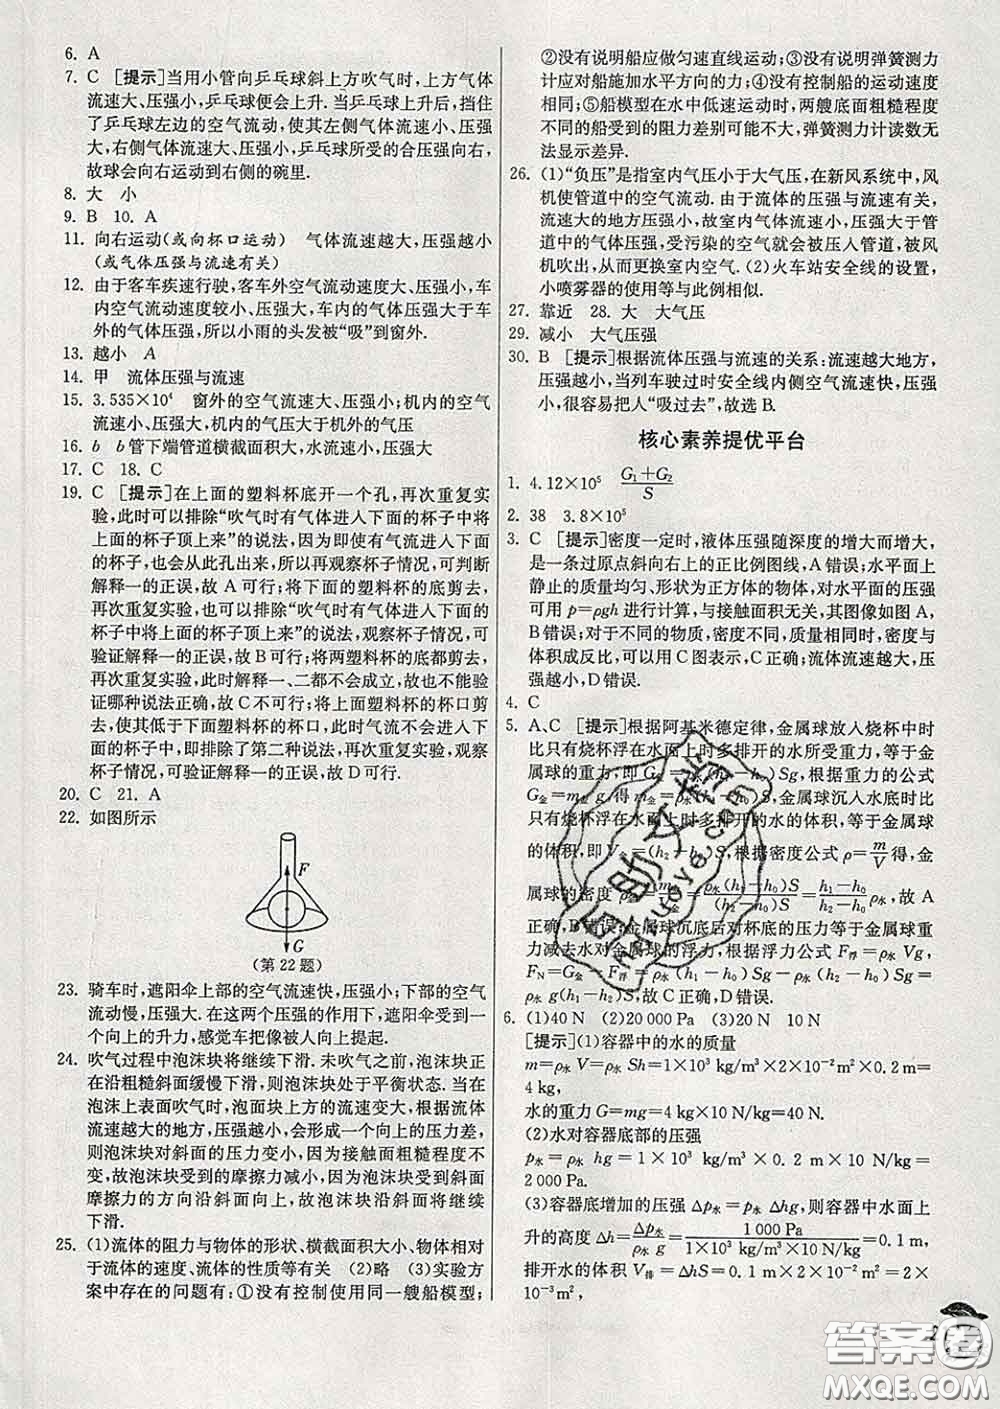 6. A
7. C [提示]当用小管向乒乓球斜上方吹气时,上方气体
流速大、压强小,乒乓球便会上升. 当乒乓球上升后,挡住
了乒乓球左边的空气流动,使其左侧气体流速小、压强
大,右侧气体流速大、压强小,乒乓球所受的合压强向右,
故球会向右运动到右侧的碗里.
8. 大 小
9. B 10. A
11. 向右运动(或向杯口运动) 气体流速越大,压强越小
(或气体压强与流速有关)
12. 由于客车疾速行驶,客车外空气流动速度大、压强小,车
内空气流动速度较小、压强大,车内的气体压强大于车
外的气体压强,所以小雨的头发被“吸”到窗外.
13. 越小 A
14. 甲 流体压强与流速
15. 3.535×10⁴ 窗外的空气流速大、压强小;机内的空气
流速小、压强大,机内的气压大于机外的气压
16. b b管下端管道横截面积大,水流速小、压强大
17. C 18. C
19. C [提示]在上面的塑料杯底开一个孔,再次重复实
验,此时可以排除“吹气时有气体进入下面的杯子中将
上面的杯子顶上来”的说法,因为即使有气流进入下面
的杯子,也会从此孔出来,所以再观察杯子情况,可判断
解释一的正误,故 A 可行;将下面的塑料杯的底剪去,
再次重复实验,也可以排除“吹气时有气体进入下面的
杯子中将上面的杯子顶上来”的说法,观察杯子情况,可
验证解释一的正误,故 B 可行;将两塑料杯的底都剪去,
再次重复实验,此时解释一、二都不会成立,故也不能验
证哪种说法正确,故 C 不可行;将上面塑料杯的杯口剪
去,使其低于下面塑料杯的杯口,此时气流不会进入下
面的杯子中,即排除了第二种说法,再次重复实验,观察
杯子情况,可验证解释一的正误,故 D 可行.
20. C 21. A
22. 如图所示
F
G
(第 22 题)
23. 骑车时,遮阳伞上部的空气流速快,压强小;下部的空气
流动慢,压强大. 在这两个压强的作用下,遮阳伞受到一
个向上的升力,感觉车把像被人向上提起.
24. 吹气过程中泡沫块将继续下滑. 未吹气之前,泡沫块正
在沿粗糙斜面缓慢下滑,则泡沫块处于平衡状态. 当在
泡沫块上表面吹气时,泡面块上方的流速变大,根据流体
流速越大的地方,压强越小,会形成一个向上的压力差,
则泡沫块对斜面的压力变小,因为接触面粗糙程度不
变,故泡沫块受到的摩擦力减小,因为泡沫块受到斜面
摩擦力的方向沿斜面向上,故泡沫块沿斜面将继续
下滑.
25. (1)流体的阻力与物体的形状、横截面积大小、物体相对
于流体的速度、流体的性质等有关 (2)略 (3)实验方
案中存在的问题有:①没有控制使用同一艘船模型;
②没有说明船应做匀速直线运动;③没有说明弹簧测力
计应对船施加水平方向的力;④没有控制船的运动速度
相同;⑤船模型在水中低速运动时,两艘底面粗糙程度
不同的船受到的阻力差别可能不大,弹簧测力计读数无
法显示差异.
26. (1)“负压”是指室内气压小于大气压,在新风系统中,风
机使管道中的空气流动. 由于流体的压强与流速有关,
流速大的地方压强小,故室内气体流速小、压强大于管
道中的气体压强,受污染的空气就会被压入管道,被风
机吹出,从而更换室内空气. (2)火车站安全线的设置,
小喷雾器的使用等与此例相似.
27. 靠近 28. 大 大气压
29. 减小 大气压强
30. B [提示]根据流体压强与流速的关系:流速越大地方,
压强越小,当列车驶过时安全线内侧空气流速快,压强
小,很容易把人“吸过去”,故选 B.
核心素养提优平台
1. 4.12×10⁵ (G₁+G₂)/S
2. 38 3.8×10⁵
3. C [提示]密度一定时,液体压强随深度的增大而增大,
是一条过原点斜向右上的正比例图线,A 错误;水平面上
静止的质量均匀、形状为正方体的物体,对水平面的压强
可用 p=ρgh 进行计算,与接触面积无关,其图像如图 A,
B 错误;对于不同的物质,密度不同,质量相同时,密度与
体积成反比,可以用 C 图表示,C 正确;流体流速越大,压
强越小,D 错误.
4. C
5. A、C [提示]根据阿基米德定律,金属球放入烧杯中时
比只有烧杯浮在水面上时多排开的水所受重力,等于金
属球的重力;即 G金=ρ水(h₁−h₀)Sg,根据重力的公式
G金=m金 g,得 m金=ρ水(h₁−h₀)S,金属球沉入水底时比
只有烧杯浮在水面上时多排开的水的体积,等于金属球
的体积,即 V金=(h₂−h₀)S,根据密度公式 ρ=m/V 得,金
属球的密度 ρ金=m金/V金=ρ水(h₁−h₀)S/(h₂−h₀)S=(h₁−h₀)/(h₂−h₀)ρ水,故 A
正确,B 错误;金属球沉底后对杯底的压力等于金属球重
力减去水对金属球的浮力,根据浮力公式 F浮=ρ水 Vg,
F_N=G金−F浮=ρ水(h₁−h₀)Sg−ρ水(h₂−h₀)Sg=
ρ水 g(h₁−h₂)S,故 C 正确,D 错误.
6. (1)40 N (2)20 000 Pa (3)20 N 10 N
[提示](1)容器中的水的质量
m=ρ水 V=ρ水 Sh=1×10³ kg/m³×2×2×10⁻² m²×2 m=
4 kg,
水的重力 G=mg=4 kg×10 N/kg=40 N.
(2)水对容器底部的压强
p水=ρ水 hg=1×10³ kg/m³×2 m×10 N/kg=
2 000 Pa.
(3)容器底增加的压强 Δp水=ρ水 Δhg,则容器中水面上
升的高度 Δh=Δp水/ρ水g=1 000 Pa/(1×10³ kg/m³×10 N/kg)=0.1 m,
排开水的体积 V排=ΔhS=0.1 m×2×2×10⁻² m²=2×
10⁻³ m²,
答案圈
MXQE.COM